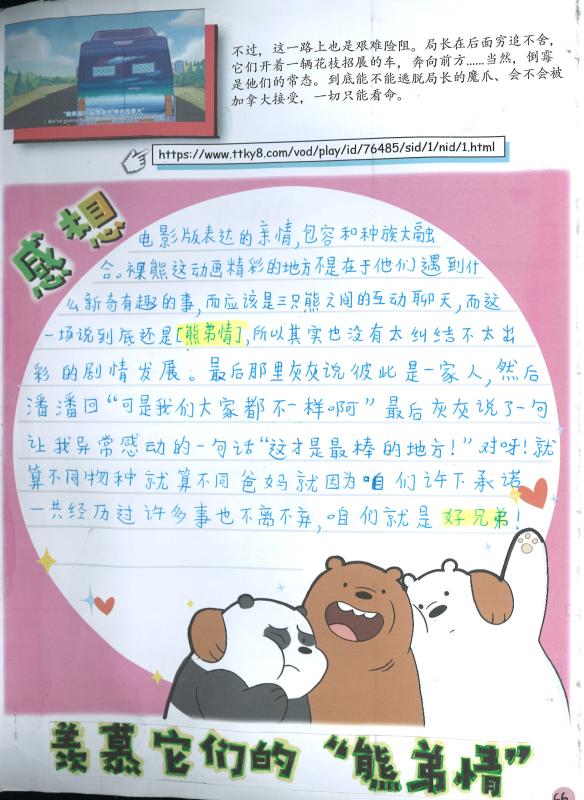 不过，这一路上也是艰难险阻。局长在后面穷追不舍，
它们开着一辆花枝招展的车，奔向前方……当然，倒霉
是他们的常态。到底能不能逃脱局长的魔爪、会不会被
加拿大接受，一切只能看命。
https://www.ttky8.com/vod/play/id/76485/sid/1/nid/1.html
感想
电影版表达的亲情,包容和种族大融
合。裸熊这动画精彩的地方不是在于他们遇到什
么新奇有趣的事,而应该是三只熊之间的互动聊天,而这
一场说到底还是[熊弟情],所以其实也没有太纠结不太出
彩的剧情发展。最后那里灰灰说彼此是一家人,然后
潘潘回“可是我们大家都不一样啊”最后灰灰说了一句
让我异常感动的一句话“这才是最棒的地方!”对呀!就
算不同物种就算不同爸妈就因为咱们许下承诺
一共经历过许多事也不离不弃,咱们就是好兄弟!
羡慕它们的“熊弟情”